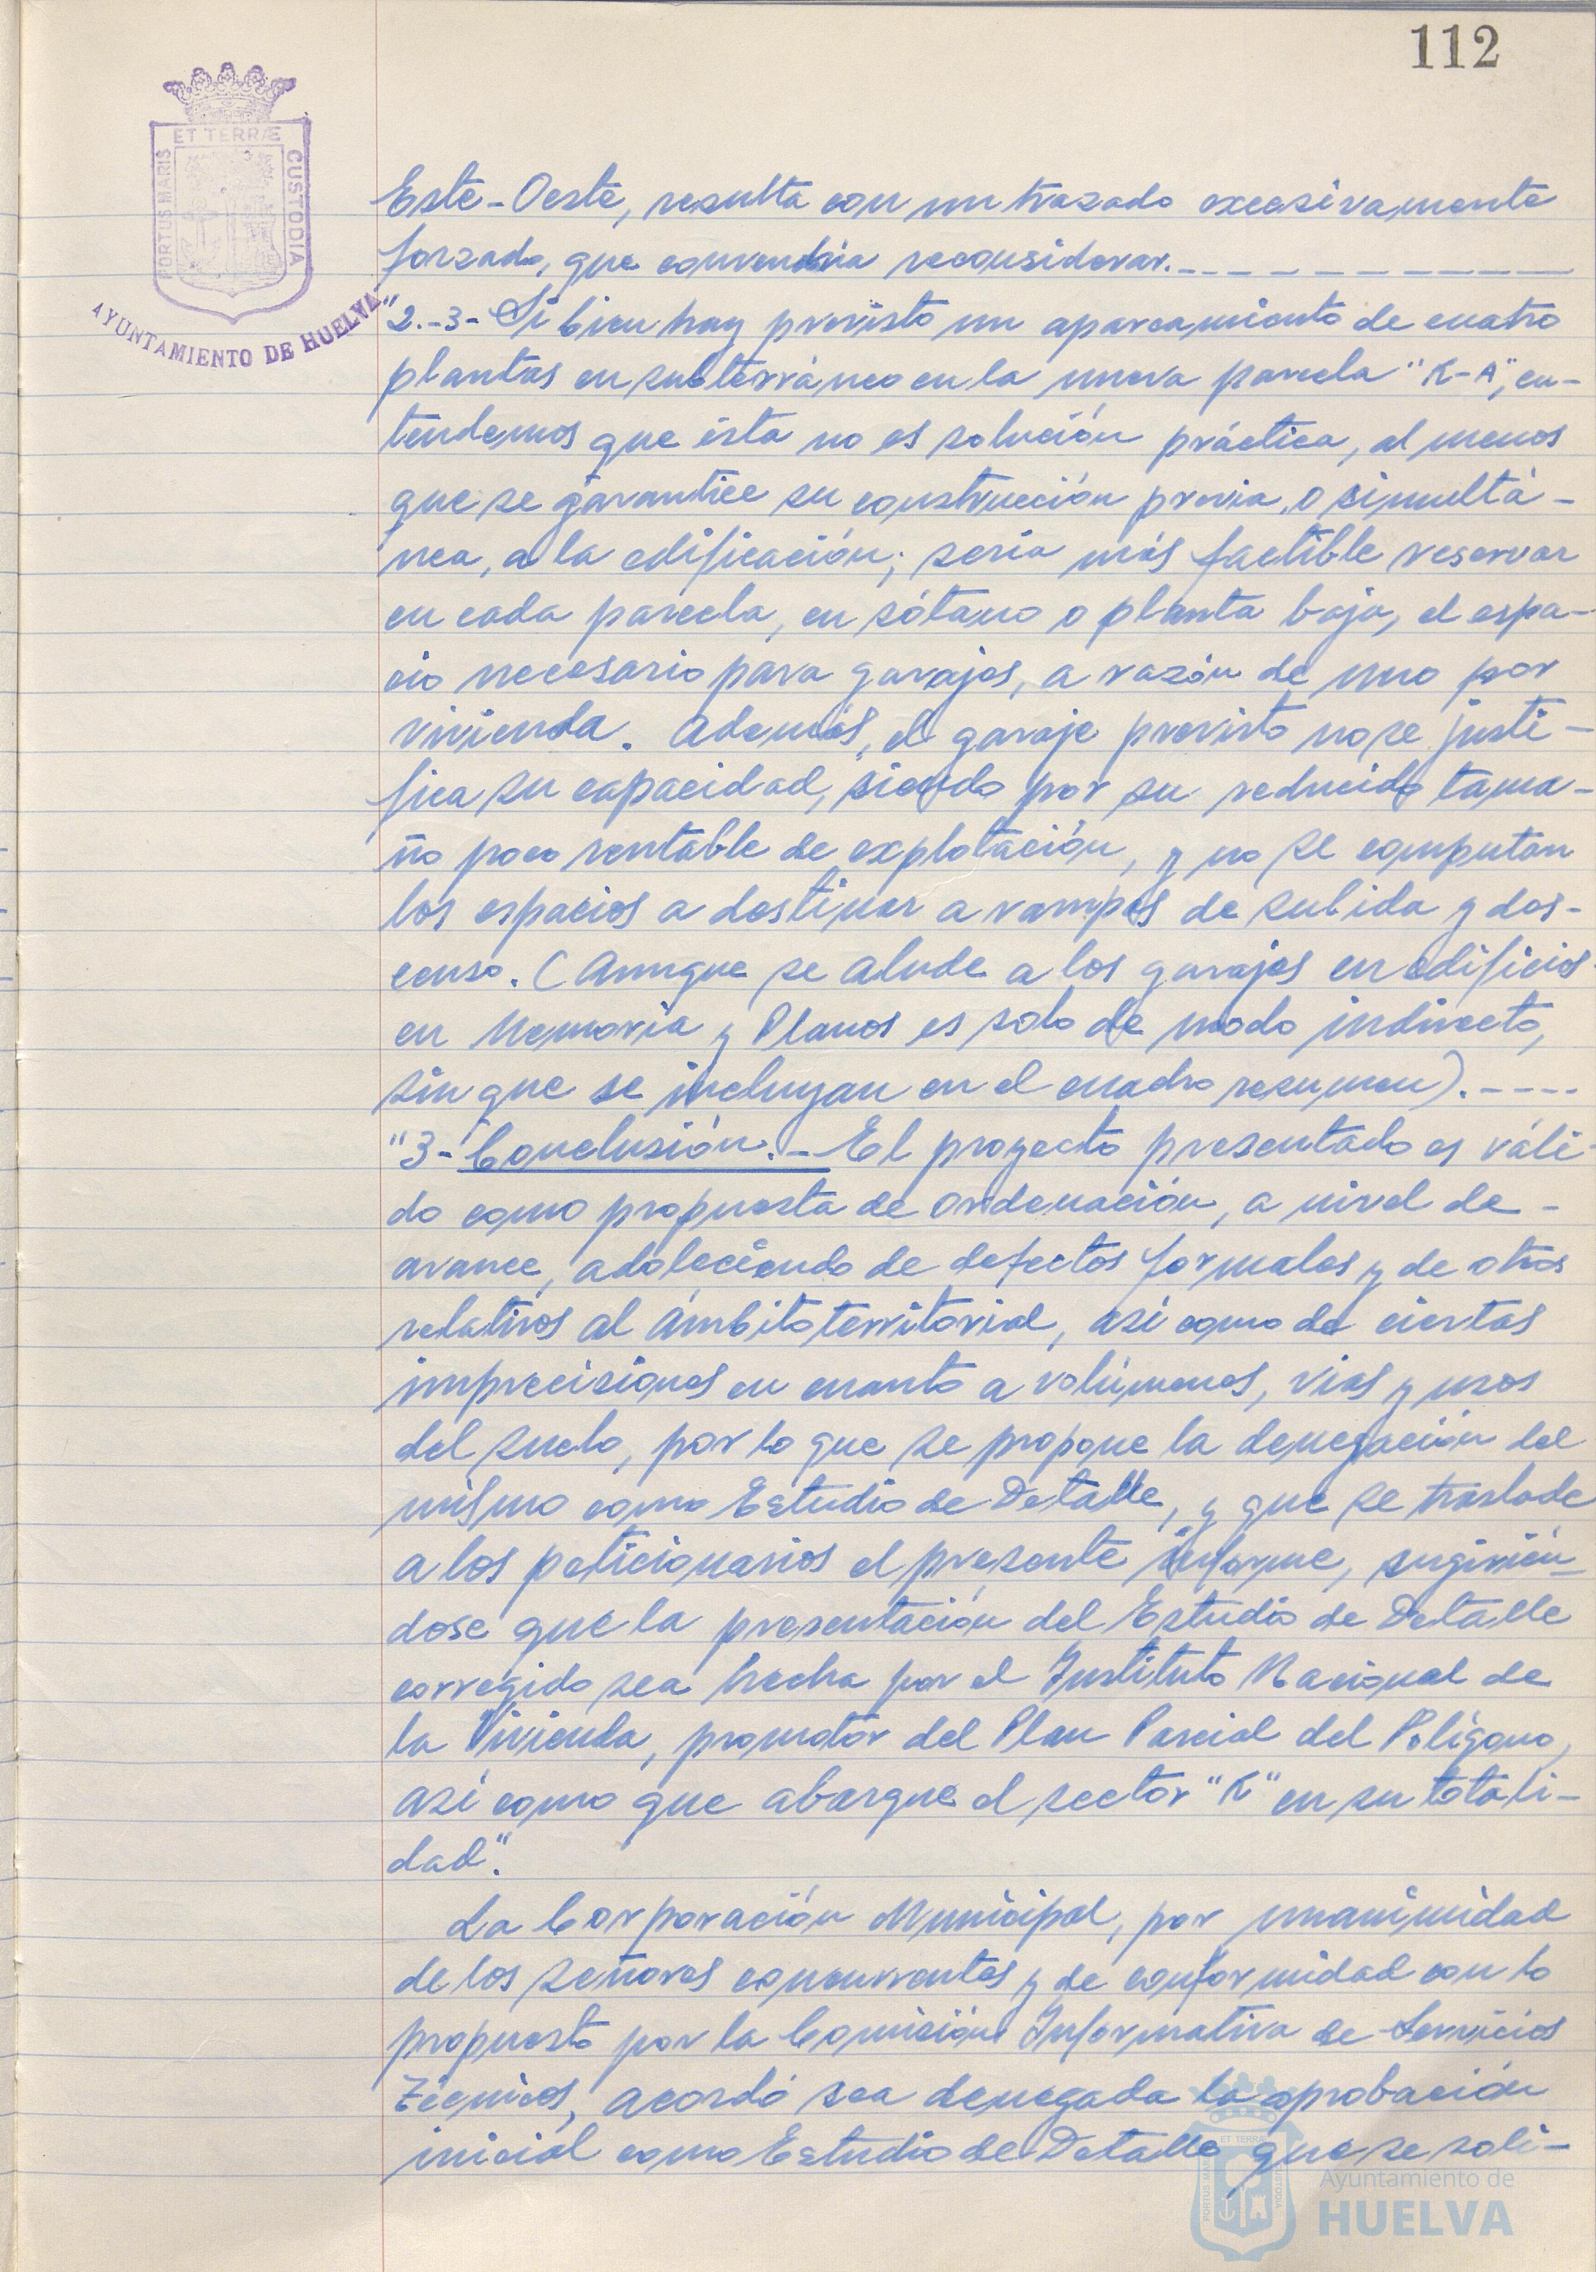 112
ET TERRÆ
PORTUS MARIS
CUSTODIA
AYUNTAMIENTO DE HUELVA
Este-Oeste, resulta con un trazado excesivamente
forzado, que convendria reconsiderar.-----------
"2.-3- Si bien hay previsto un aparcamiento de cuatro
plantas en subterráneo en la nueva parcela "K-A", en-
tendemos que ésta no es solución práctica, al menos
que se garantice su construcción previa, o simultá-
nea, a la edificación; sería más factible reservar
en cada parcela, en sótano o planta baja, el espa-
cio necesario para garajes, a razón de uno por
vivienda. Además, el garaje previsto no se justi-
fica su capacidad, siendo por su reducido tama-
ño poco rentable de explotación, y no se computan
los espacios a destinar a rampas de subida y des-
censo. (Aunque se alude a los garajes en edificios
en Memoria y Planos es solo de modo indirecto,
sin que se incluyan en el cuadro resumen).----
"3-Conclusión.- El proyecto presentado es váli-
do como propuesta de ordenación, a nivel de -
avance, adoleciendo de defectos formales y de otros
relativos al ámbito territorial, así como de ciertas
imprecisiones en cuanto a volúmenes, vias y usos
del suelo, por lo que se propone la denegación del
mismo como Estudio de Detalle, y que se traslade
a los peticionarios el presente informe, sugirién-
dose que la presentación del Estudio de Detalle
corregido sea hecha por el Instituto Nacional de
la Vivienda, promotor del Plan Parcial del Polígono,
así como que abarque el sector "K" en su totali-
dad".
La Corporación Municipal, por unanimidad
de los señores concurrentes y de conformidad con lo
propuesto por la Comisión Informativa de Servicios
Técnicos, acordó sea denegada la aprobación
inicial como Estudio de Detalle que se soli-
ET TERRÆ
CUSTODIA
Ayuntamiento de
HUELVA